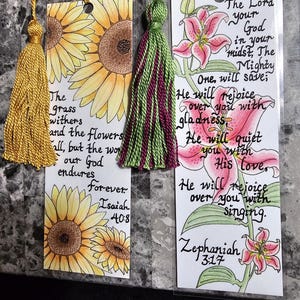 The
grass
withers
and the flowers
all, but the wo
our God
endures
forever
Isaiah
40:8
The Lord
your
God
in your
midst, The
Mighty
One, will save;
He will rejoice
over you with
gladness.
He will quiet
you with
His love,
He will rejoice
over you with
singing.
Zephaniah
3:17